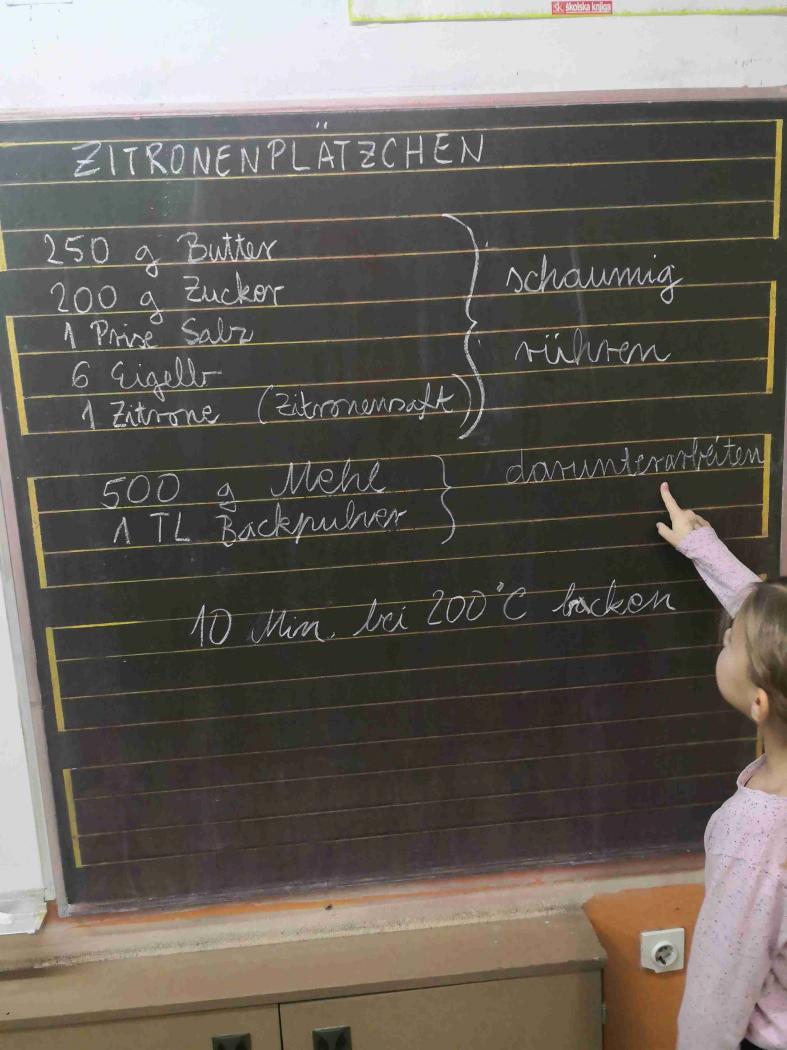 školska knjiga
ZITRONENPLÄTZCHEN
250 g Butter
200 g Zucker
1 Prise Salz
6 Eigelb
1 Zitrone (Zitronensaft)
schaumig
rühren
500 g Mehl
1 TL Backpulver
darunterarbeiten
10 Min. bei 200°C backen